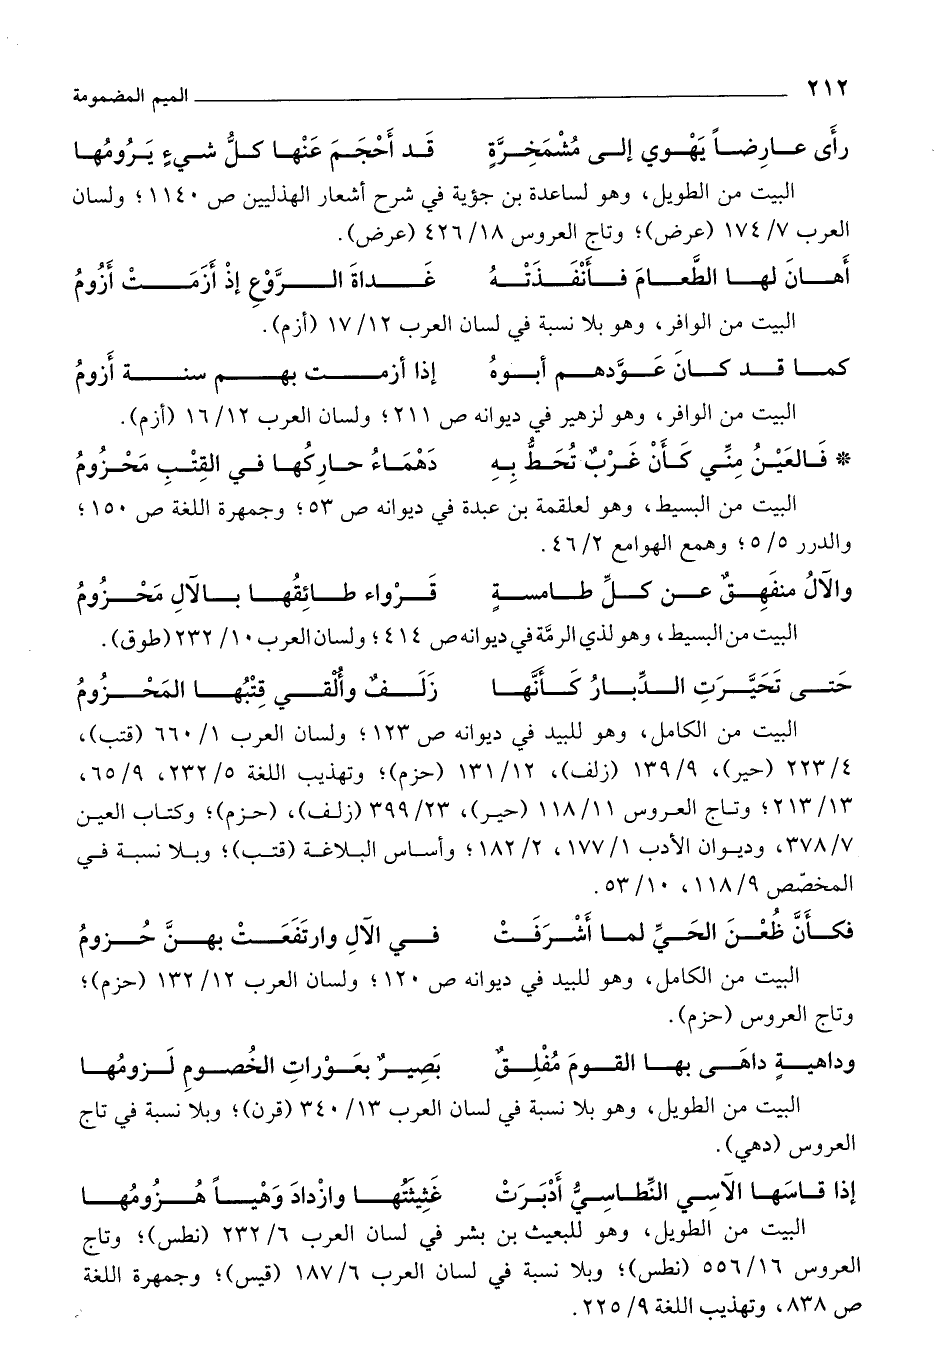 ٢١٢ الميم المضمومة
رأَى عارِضاً يَهْوي إلى مُشْمَخِرَّةٍ قَد أَحْجَمَ عَنْها كلُّ شيءٍ يَرُومُها
البيت من الطويل، وهو لساعدة بن جؤية في شرح أشعار الهذليين ص ١١٤٠؛ ولسان
العرب ٧/ ١٧٤ (عرض)؛ وتاج العروس ١٨/ ٤٢٦ (عرض).
أَهانَ لها الطَّعامَ فأَنْفَذَتْهُ غَداةَ الرَّوْعِ إذْ أَزَمَتْ أَزُومُ
البيت من الوافر، وهو بلا نسبة في لسان العرب ١٢/ ١٧ (أزم).
كما قد كانَ عَوَّدهم أبوهُ إذا أزمت بهم سنة أَزومُ
البيت من الوافر، وهو لزهير في ديوانه ص ٢١١؛ ولسان العرب ١٢/ ١٦ (أزم).
* فَالعَيْنُ مِنِّي كَأَنْ غَرْبٌ تَحُطُّ بِهِ دَهْمَاءُ حارِكُها في القِتْبِ مَحْزُومُ
البيت من البسيط، وهو لعلقمة بن عبدة في ديوانه ص ٥٣؛ وجمهرة اللغة ص ١٥٠؛
والدرر ٥/ ٥؛ وهمع الهوامع ٢/ ٤٦.
والآلُ منفَهِقٌ عن كلِّ طامسةٍ قَرْواء طائِقُها بالآلِ مَحْزُومُ
البيت من البسيط، وهو لذي الرمَّة في ديوانه ص ٤١٤؛ ولسان العرب ١٠/ ٢٣٢ (طوق).
حَتى تَحَيَّرَتِ الدِّبارُ كَأَنَّها زَلَفٌ وأُلْقي قِتْبُها المَحْزُومُ
البيت من الكامل، وهو للبيد في ديوانه ص ١٢٣؛ ولسان العرب ١/ ٦٦٠ (قتب)،
٤/ ٢٢٣ (حير)، ٩/ ١٣٩ (زلف)، ١٢/ ١٣١ (حزم)؛ وتهذيب اللغة ٥/ ٢٣٢، ٩/ ٦٥،
١٣/ ٢١٣؛ وتاج العروس ١١/ ١١٨ (حير)، ٢٣/ ٣٩٩ (زلف)، (حزم)؛ وكتاب العين
٧/ ٣٧٨، وديوان الأدب ١/ ١٧٧، ٢/ ١٨٢؛ وأساس البلاغة (قتب)؛ وبلا نسبة في
المخصّص ٩/ ١١٨، ١٠/ ٥٣.
فكأَنَّ ظُعْنَ الحَيِّ لما أَشْرَفَتْ في الآلِ وارتَفَعَتْ بهنَّ حُزومُ
البيت من الكامل، وهو للبيد في ديوانه ص ١٢٠؛ ولسان العرب ١٢/ ١٣٢ (حزم)؛
وتاج العروس (حزم).
وداهيةٍ داهَى بها القومَ مُفْلِقٌ بَصِيرٌ بعَوْراتِ الخُصومِ لَزومُها
البيت من الطويل، وهو بلا نسبة في لسان العرب ١٣/ ٣٤٠ (قرن)؛ وبلا نسبة في تاج
العروس (دهي).
إذا قاسَها الآسِي النِّطاسِيُّ أَدْبَرَتْ غَثِيثَتُها وازْدادَ وَهْياً هُزُومُها
البيت من الطويل، وهو للبعيث بن بشر في لسان العرب ٦/ ٢٣٢ (نطس)؛ وتاج
العروس ١٦/ ٥٥٦ (نطس)؛ وبلا نسبة في لسان العرب ٦/ ١٨٧ (قيس)؛ وجمهرة اللغة
ص ٨٣٨، وتهذيب اللغة ٩/ ٢٢٥.